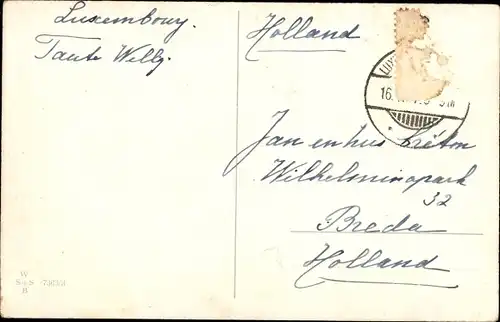 Luxembourg.
Tante Willy.
Holland
16.
Jan en hus Créton
Wilhelminapark
32
Breda
Holland
W
S+S
B